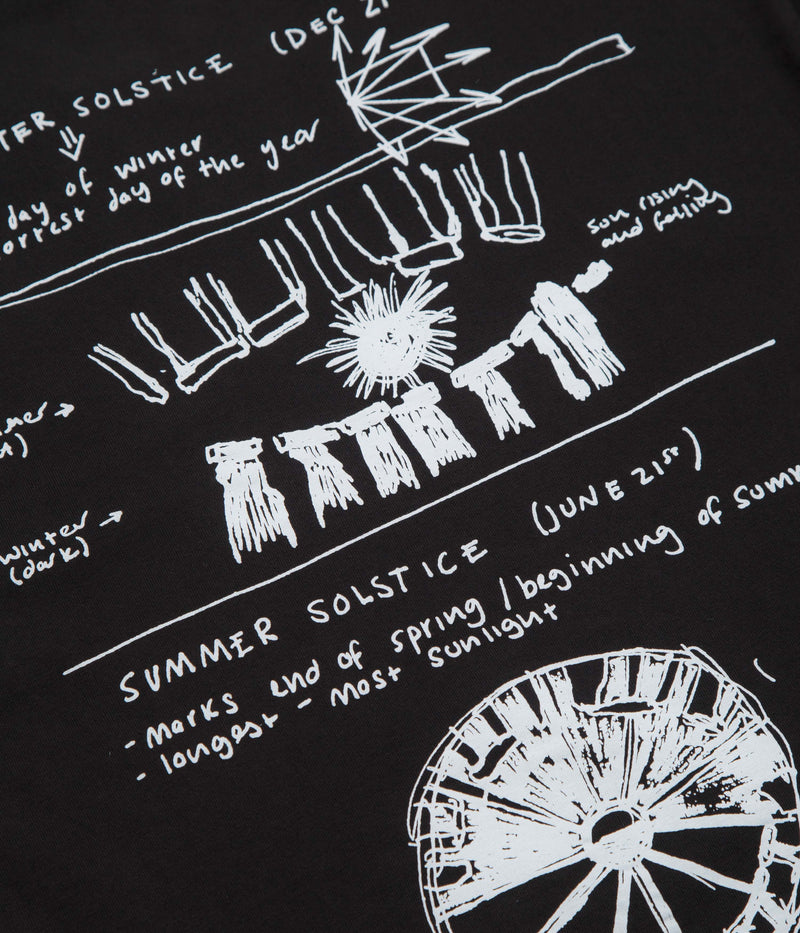 TER SOLSTICE (DEC 21
day of winter
ortest day of the year
sun rising
and falling
mer →
winter →
(dark)
SUMMER SOLSTICE (JUNE 21st)
- marks end of spring / beginning of summ
- longest - most sunlight